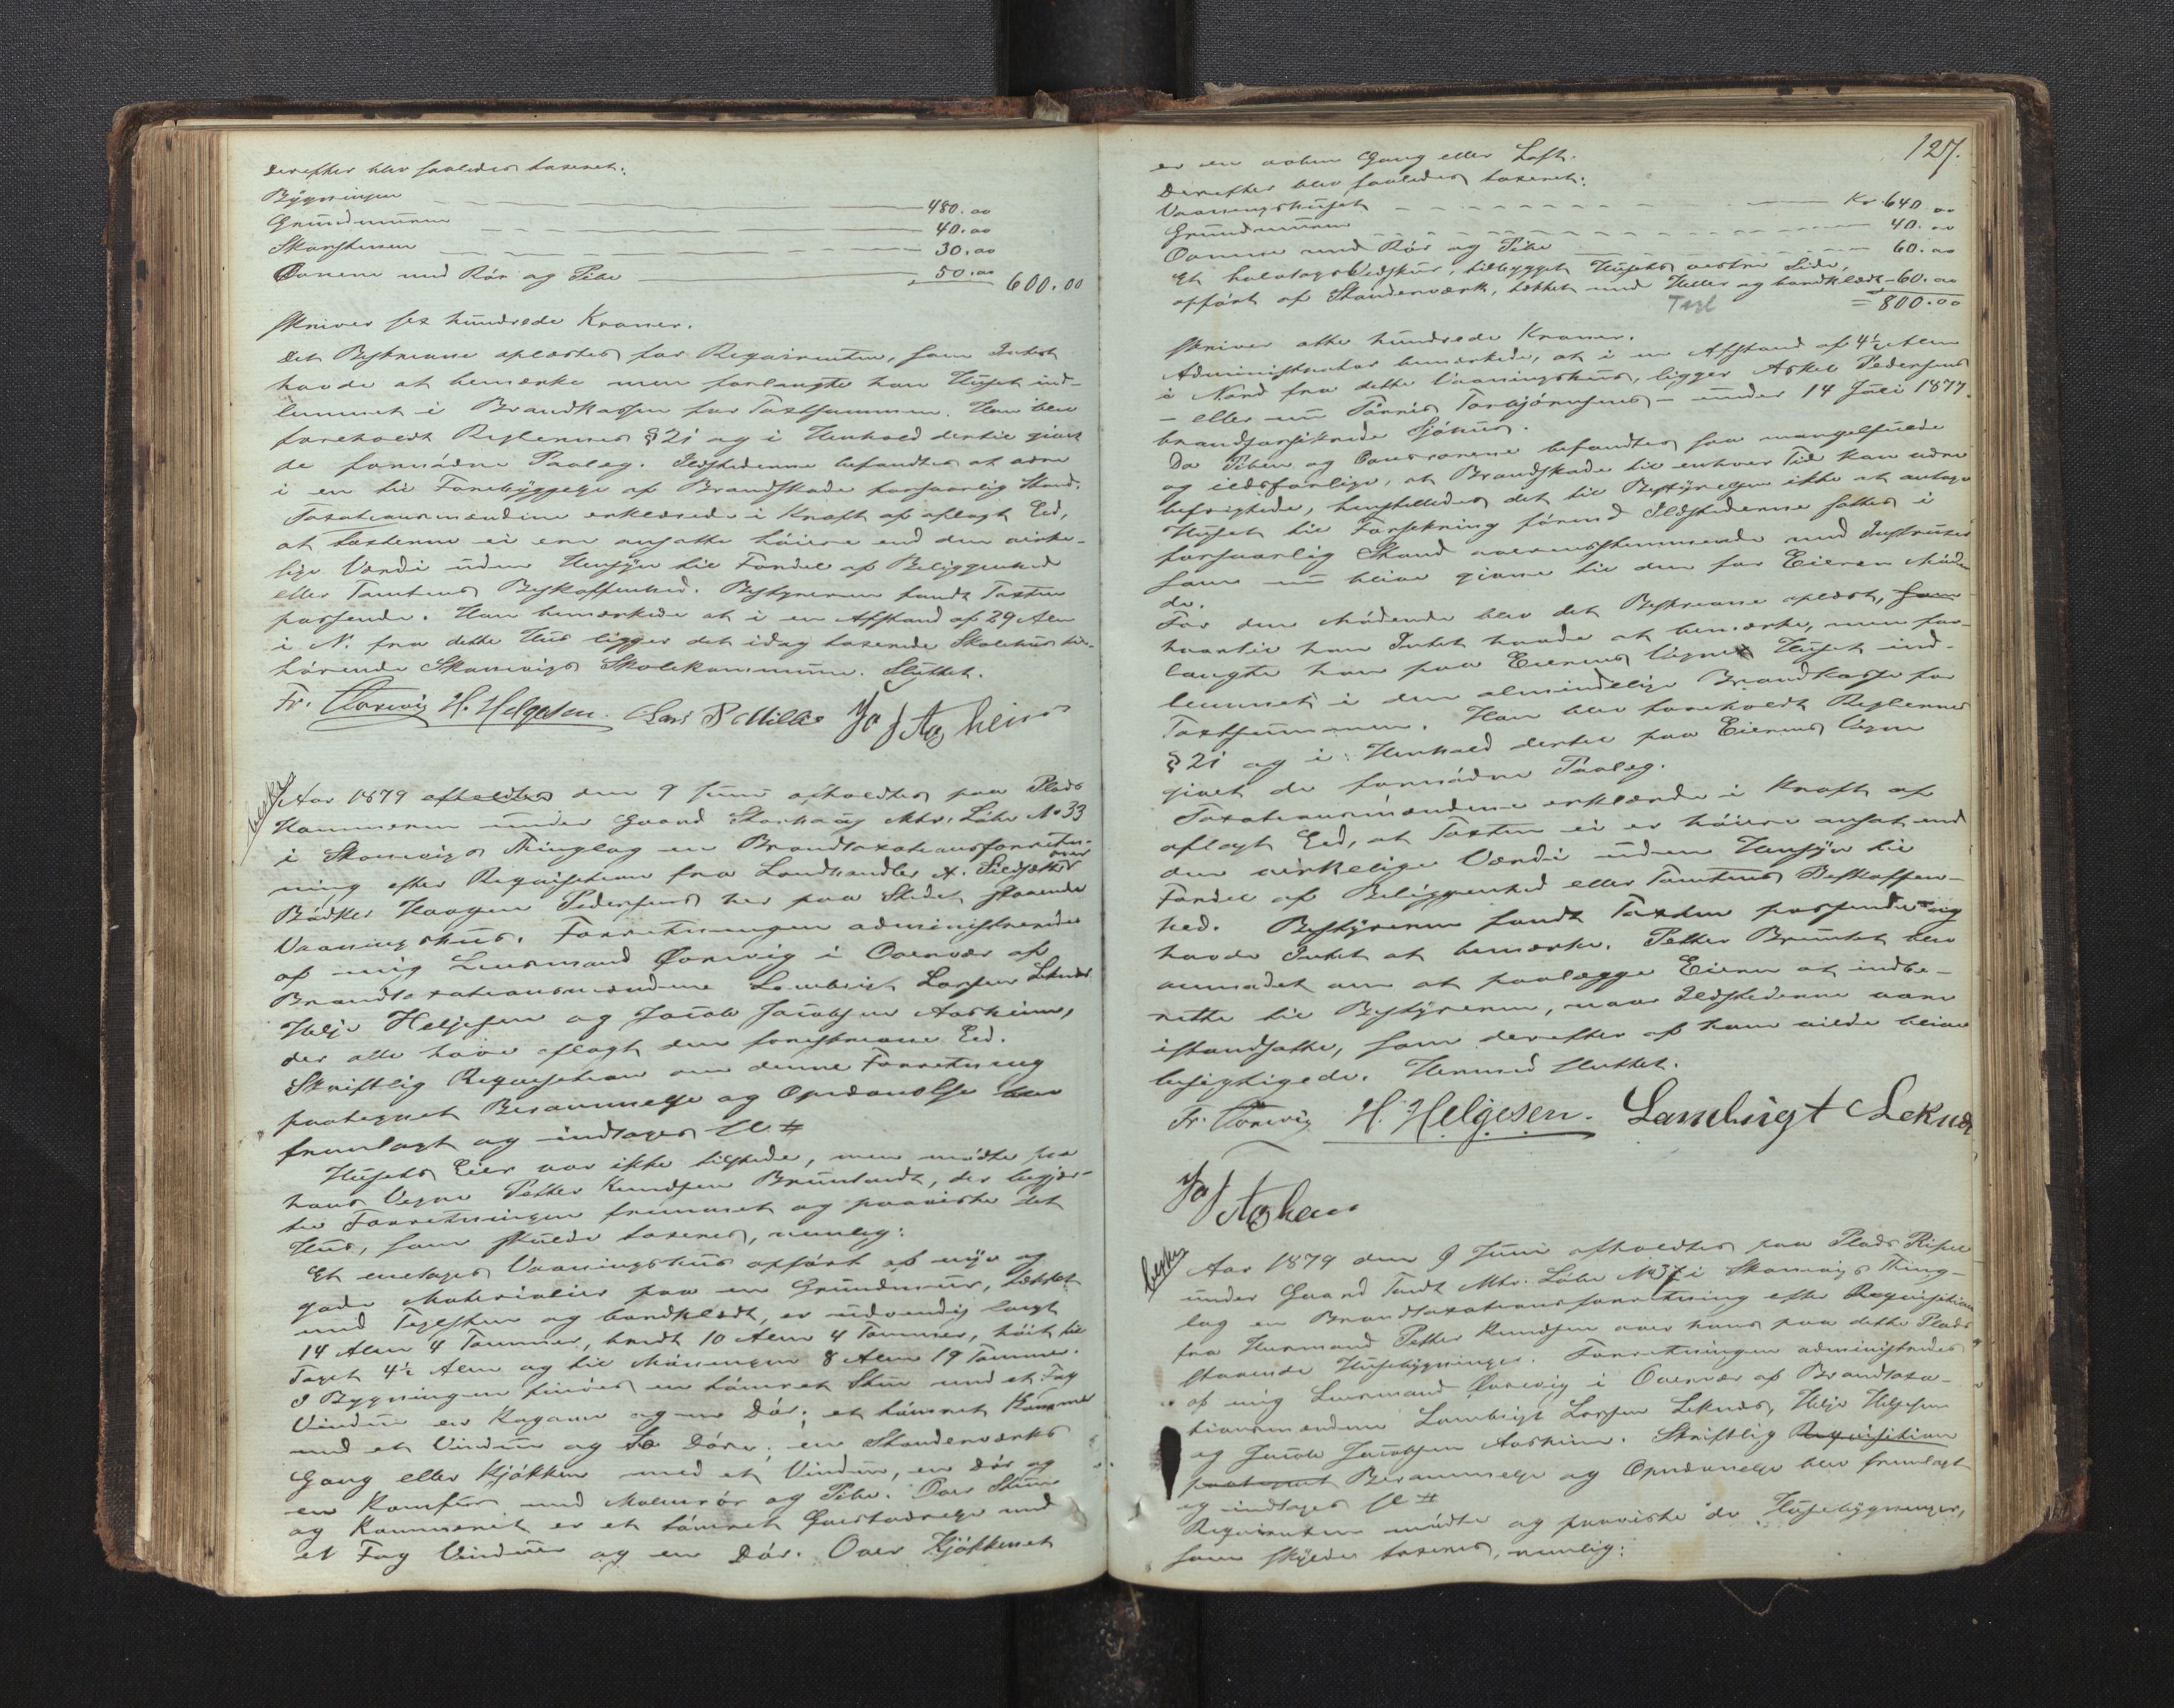 Derefter blev saaledes taxeret:
Bÿgningen 480.00
Grundmuren 40.00
Skorstenen 30.00
Ovnene med Rör og Pibe 50.00 600.00
skriver sex hundrede Kroner.
Det Beskrevne oplæstes for Requirenten, som Intet
havde at bemærke men forlangte han Huset ind-
lemmet i Brandkassen for Taxtsummen. Han blev
foreholdt Reglernes § 21 og i Henhold dertil givet
de fornödne Paalæg. Ildstederne befandtes at være
i en til Forebÿggelse af Brandskade forsvarlig Stand.
Taxationsmændene erklærede i Kraft af aflagt Eed,
at Taxterne ei ere ansatte höiere end den virke-
lige Værdi uden Hensÿn til Fordel af Beliggenhed
eller Tomtens Beskaffenhed. Bestyreren fandt Taxten
passende. Han bemærkede at i en Afstand af 29 Alen
i N. fra dette Hus ligger det idag taxerede Skolehus til-
hörende Skonevigs Skolekommune. Sluttet.
Fr. Torvig H. Helgesen. Lars P Millie Ja J Asheim
Aar 1879 afholdtes den 9 Juni afholdtes paa Plads
Hammeren under Gaard Storhaug Mtr. Löbe No 33
i Skonevigs Thinglag en Brandtaxationsforret-
ning efter Requisition fra Landhandler A. over
Bödker Haagen Pedersens her paa Stedet staaende
Vaaningshus. Forretningen administreredes
af mig Lensmand i Overvær af
Brandtaxationsmændene Lambrigt Larsen Leknes
Helje Heljesen og Jacob Jacobsen Aasheim,
der alle have aflagt den foreskrevne Eed.
Skriftlig Requisition om denne Forretning
paategnet Berammelse og Opnævnelse blev
fremlagt og indtages #
Husets Eier var ikke tilstede, men mödte paa
hans Vegne Petter Knudsen Bruntveit, der begjær-
te Forretningen fremmet og paaviste det
Hus, som skulde taxeres, nemlig:
Et enetages Vaaningshus opfört af nÿe og
gode Materialier paa en Grundmur, tækket
med Teglsten og bordklædt, er udvendig langt
14 Alen 4 Tommer, bredt 10 Alen 4 Tommer, höit til
Taget 4½ Alen og til Möningen 8 Alen 19 Tommer.
I Bygningen findes en tömret Stue med et Fag
Vindue en Kogeovn og en Dör; et tömret Kammer
med et Vindue og to Döre; en Standerværks
Gang eller Kjökken med et Vindue, en Dör og
en Komfur med Malmrör og Pibe. Over Stuen
og Kammeret er et tömret Qvistværelse med
et Fag Vinduer og en Dör. Over Kjökkenet
127.
er en aaben Gang eller Loft.
Derefter blev saaledes taxeret:
Vaaningshuset Kr. 640.00
Grundmuren 40.00
Ovnene med Rör og Pibe 60.00
Et halvtags Vedskur, tilbygget Husets vestre Side,
opfört af Standerværk, tækket med Heller og bordklædt - 60.00
Tegl = 800.00
skriver otte hundrede Kroner.
Administrator bemærkede, at i en Afstand af 4½ Alen
i Nord fra dette Vaaningshus, ligger Askel Pedersens
- eller nu Tönnis Torbjörnsens - under 14 Juli 1877
brandforsikrede Sjöhus.
Da Piben og Ovnsrörene befandtes saa mangelfulde
og ildsfarlige, at Brandskade til enhver Tid kan være
befrygtede, henstilledes det til Bestÿrelsen ikke at antage
Huset til Forsikring förend Ildstederne sættes i
forsvarlig Stand overensstemmende med Instruxer
som nu bleve givne til den for Eieren Möden
de.
For den Mödende blev det Beskrevne oplæst, som
hvortil han Intet havde at bemærke, men for-
langte han paa Eierens Vegne Huset ind-
lemmet i den almindelige Brandkasse for
Taxtsummen. Han blev foreholdt Reglernes
§ 21 og i Henhold dertil paa Eierens Vegne
givet de fornödne Paalæg.
Taxationsmændene erklærede i Kraft af
aflagt Eed, at Taxten ei er höiere ansat end
den virkelige Værdi uden Hensÿn til
Fordel af Beliggenhed eller Tomtens Beskaffen-
hed. Bestÿreren fandt Taxten passende og
havde Intet at bemærke. Petter Bruntvet blev
anmodet om at paalægge Eieren at indbe-
rette til Bestÿreren, naar Ildstederne vare
istandsatte, som derefter af ham vilde blive
besigtigede. Hermed sluttet.
Fr. Torvig H. Helgesen. Lambrigt Leknes
Ja J Asheim
Aar 1879 den 9 Juni afholdtes paa Plads
under Gaard Tvedt Mtr. Löbe No 37 i Skonevigs Thing-
lag en Brandtaxationsforretning efter Requisition
fra Huusmand Petter Knudsen over hans paa dette Plads
staaende Husebÿgninger. Forretningen administreredes
af mig Lensmand i Overvær af Brandtaxa-
tionsmændene Lambrigt Larsen Leknes, Helje Heljesen
og Jacob Jacobsen Aasheim. Skriftlig Requisition
paategnet Berammelse og Opnævnelse blev fremlagt
og indtages #
Requirenten mödte og paaviste de Husebÿgninger,
som skulde taxeres, nemlig: